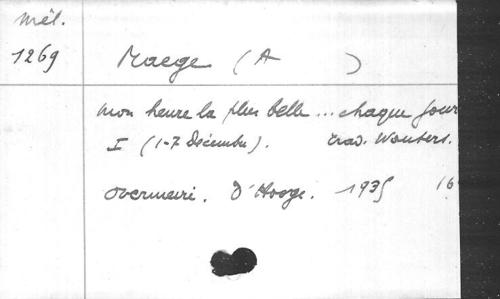 Mél.
1269 Maege (A )
Mon heure la plus belle ... chaque jour
I (1-7 Décembre). trad. Wouters.
Overmeire. D'Hooge. 1935 16